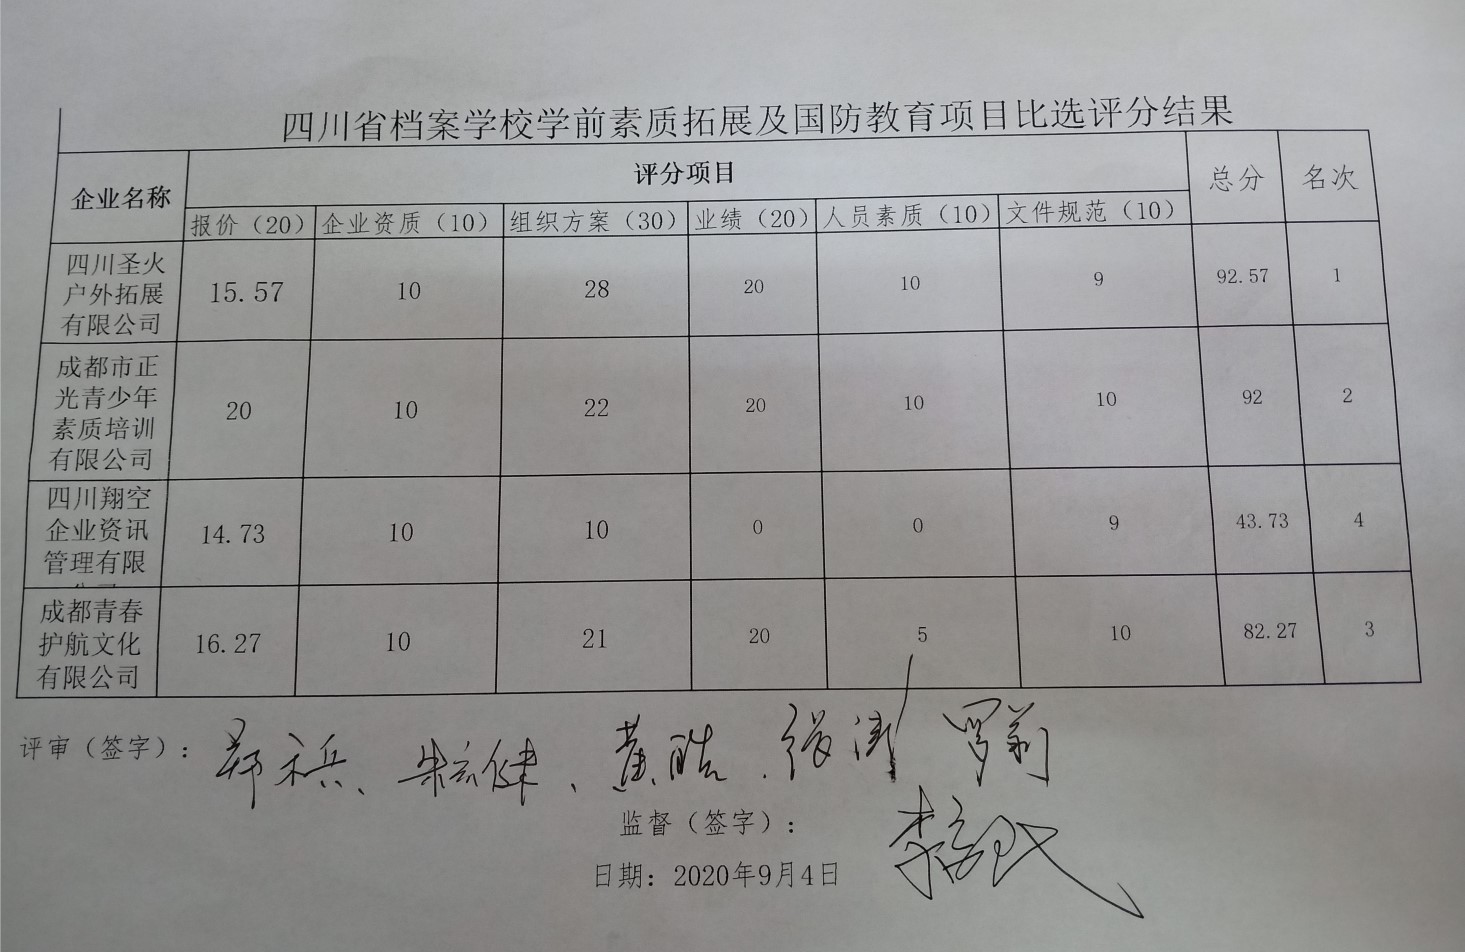 四川省档案学校学前素质拓展及国防教育项目比选评分结果
企业名称 评分项目 总分 名次
报价（20） 企业资质（10） 组织方案（30） 业绩（20） 人员素质（10） 文件规范（10）
四川圣火
户外拓展
有限公司
15.57 10 28 20 10 9 92.57 1
成都市正
光青少年
素质培训
有限公司
20 10 22 20 10 10 92 2
四川翔空
企业资讯
管理有限
14.73 10 10 0 0 9 43.73 4
成都青春
护航文化
有限公司
16.27 10 21 20 5 10 82.27 3
评审（签字）： 黄皓 张涛 罗莉
监督（签字）：
日期：2020年9月4日